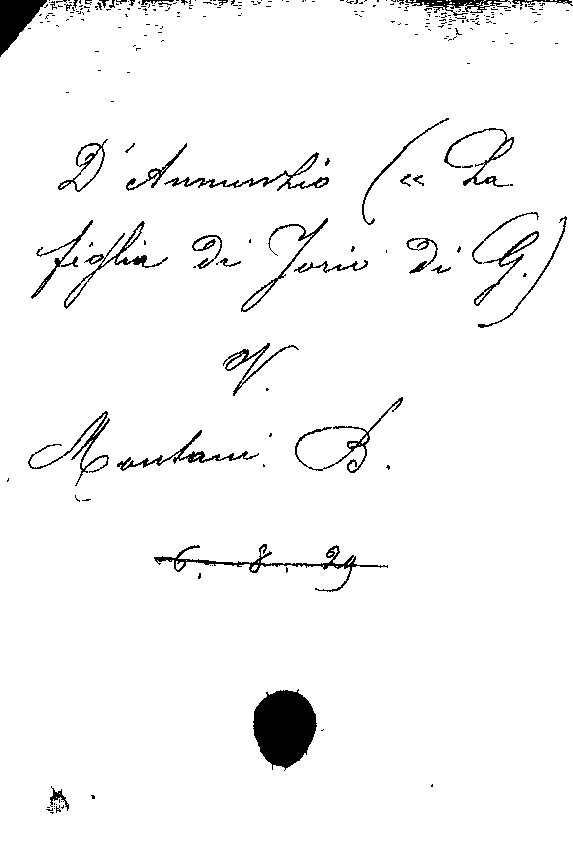 D'Annunzio (« La
figlia di Jorio di G.)
V.
Montani B.
6. 8. 29